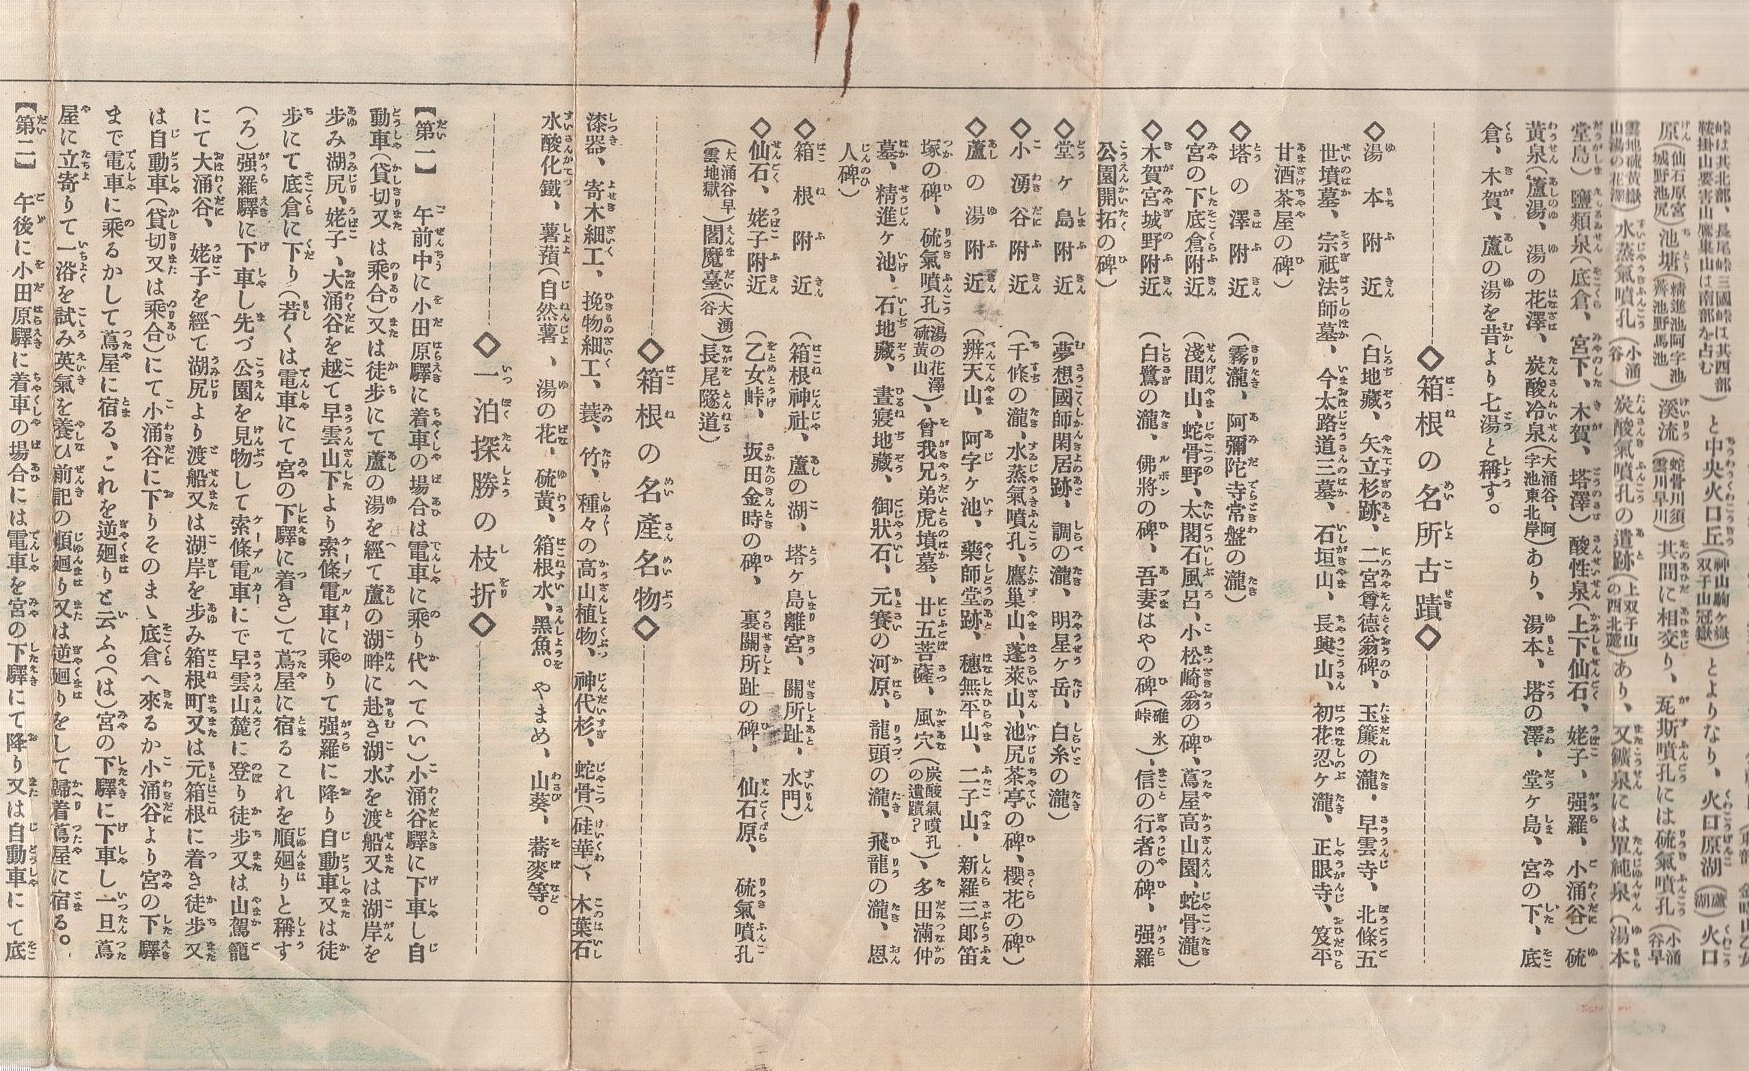 峠は其北部、長尾峠三國峠は其西部
鞍掛山要害山鷹巣山は南部を占む
と中央火口丘(神山駒ヶ嶽双子山冠嶽)とよりなり、火口原湖(蘆湖)火口
原(仙石原宮城野池尻)池塘(精進池阿字池薺池野馬池)溪流(蛇骨川須雲川早川)其間に相交り、瓦斯噴孔には硫氣噴孔(小涌谷早
雲地硫黄嶽山湯の花澤)水蒸氣噴孔(小涌谷)炭酸氣噴孔の遺跡(上双子山の西北麓)あり、又鑛泉には單純泉(湯本
堂島)鹽類泉(底倉、宮下、木賀、塔澤)酸性泉(上下仙石、姥子、强羅、小涌谷)硫
黄泉(蘆湯、湯の花澤、炭酸冷泉(大涌谷、阿字池東北岸)あり、湯本、塔の澤、堂ヶ島、宮の下、底
倉、木賀、蘆の湯を昔より七湯と稱す。
◇箱根の名所古蹟◇
◇湯本附近(白地藏、矢立杉跡、二宮尊德翁碑、玉簾の瀧、早雲寺、北條五
世墳墓、宗祇法師墓、今太路道三墓、石垣山、長興山、初花忍ヶ瀧、正眼寺、笈平
甘酒茶屋の碑)
◇塔の澤附近(霧瀧、阿彌陀寺常盤の瀧)
◇宮の下底倉附近(淺間山、蛇骨野、太閤石風呂、小松崎翁の碑、蔦屋高山園、蛇骨瀧)
◇木賀宮城野附近(白鷺の瀧、佛將の碑、吾妻はやの碑(碓氷峠)、信の行者の碑、强羅
公園開拓の碑)
◇堂ヶ島附近(夢想國師閑居跡、調の瀧、明星ヶ岳、白糸の瀧)
◇小湧谷附近(千條の瀧、水蒸氣噴孔、鷹巣山、蓬萊山、池尻茶亭の碑、櫻花の碑)
◇蘆の湯附近(辨天山、阿字ヶ池、藥師堂跡、穗無平山、二子山、新羅三郎笛
塚の碑、硫氣噴孔(湯の花澤硫黄山)、曾我兄弟虎墳墓、廿五菩薩、風穴(炭酸氣噴孔の遺蹟?)、多田滿仲
墓、精進ヶ池、石地藏、晝寢地藏、御狀石、元賽の河原、龍頭の瀧、飛龍の瀧、恩
人碑)
◇箱根附近(箱根神社、蘆の湖、塔ヶ島離宮、關所趾、水門)
◇仙石、姥子附近(乙女峠、坂田金時の碑、裏關所趾の碑、仙石原、硫氣噴孔
(大涌谷早雲地獄)閻魔臺(大湧谷)長尾隧道)
◇箱根の名產名物◇
漆器、寄木細工、挽物細工、蓑、竹、種々の高山植物、神代杉、蛇骨(硅華)、木葉石
水酸化鐵、薯蕷(自然薯、湯の花、硫黄、箱根水、黑魚。やまめ、山葵、蕎麥等。
◇一泊探勝の枝折◇
【第一】午前中に小田原驛に着車の場合は電車に乘り代へて(い)小涌谷驛に下車し自
動車(貸切又は乘合)又は徒步にて蘆の湯を經て蘆の湖畔に赴き湖水を渡船又は湖岸を
步み湖尻、姥子、大涌谷を越て早雲山下より索條電車に乘りて强羅に降り自動車又は徒
步にて底倉に下り(若くは電車にて宮の下驛に着き)て蔦屋に宿るこれを順廻りと稱す
(ろ)强羅驛に下車し先づ公園を見物して索條電車にで早雲山麓に登り徒步又は山駕籠
にて大涌谷、姥子を經て湖尻より渡船又は湖岸を步み箱根町又は元箱根に着き徒步又
は自動車(貸切又は乘合)にて小涌谷に下りそのまゝ底倉へ來るか小涌谷より宮の下驛
まで電車に乘るかして蔦屋に宿る、これを逆廻りと云ふ。(は)宮の下驛に下車し一旦蔦
屋に立寄りて一浴を試み英氣を養ひ前記の順廻り又は逆廻りをして歸着蔦屋に宿る。
【第二】午後に小田原驛に着車の場合には電車を宮の下驛にて降り又は自動車にて底